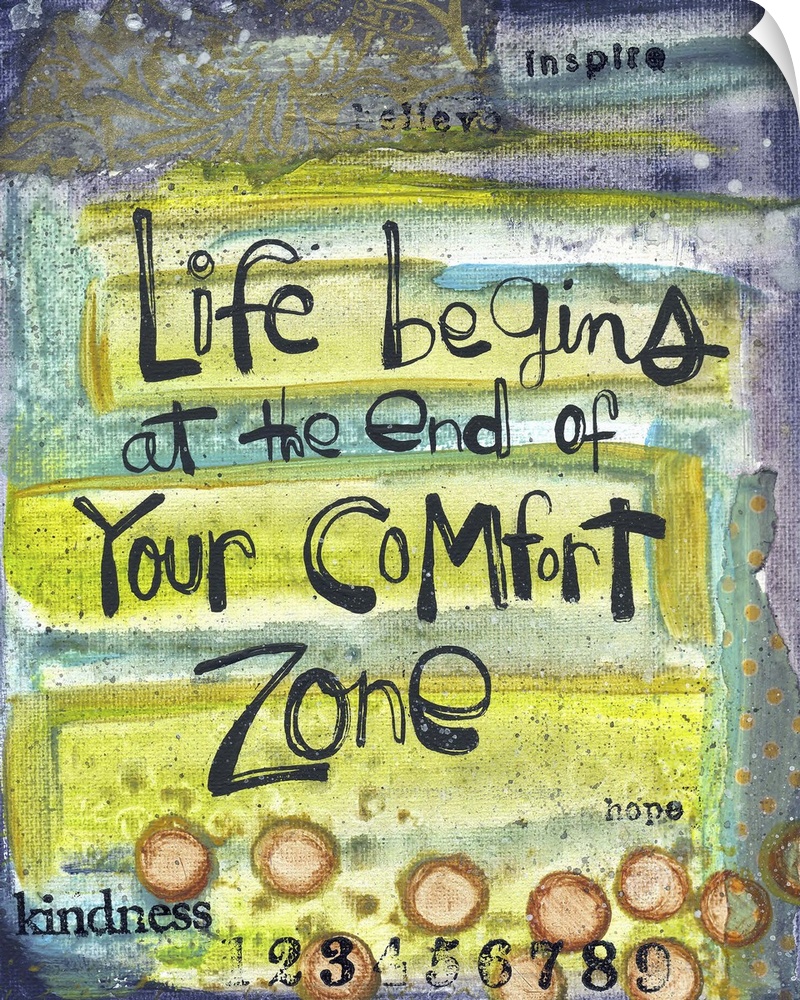 inspire
believe
Life begins
at the end of
Your CoMforT
Zone
hope
kindness
123456789